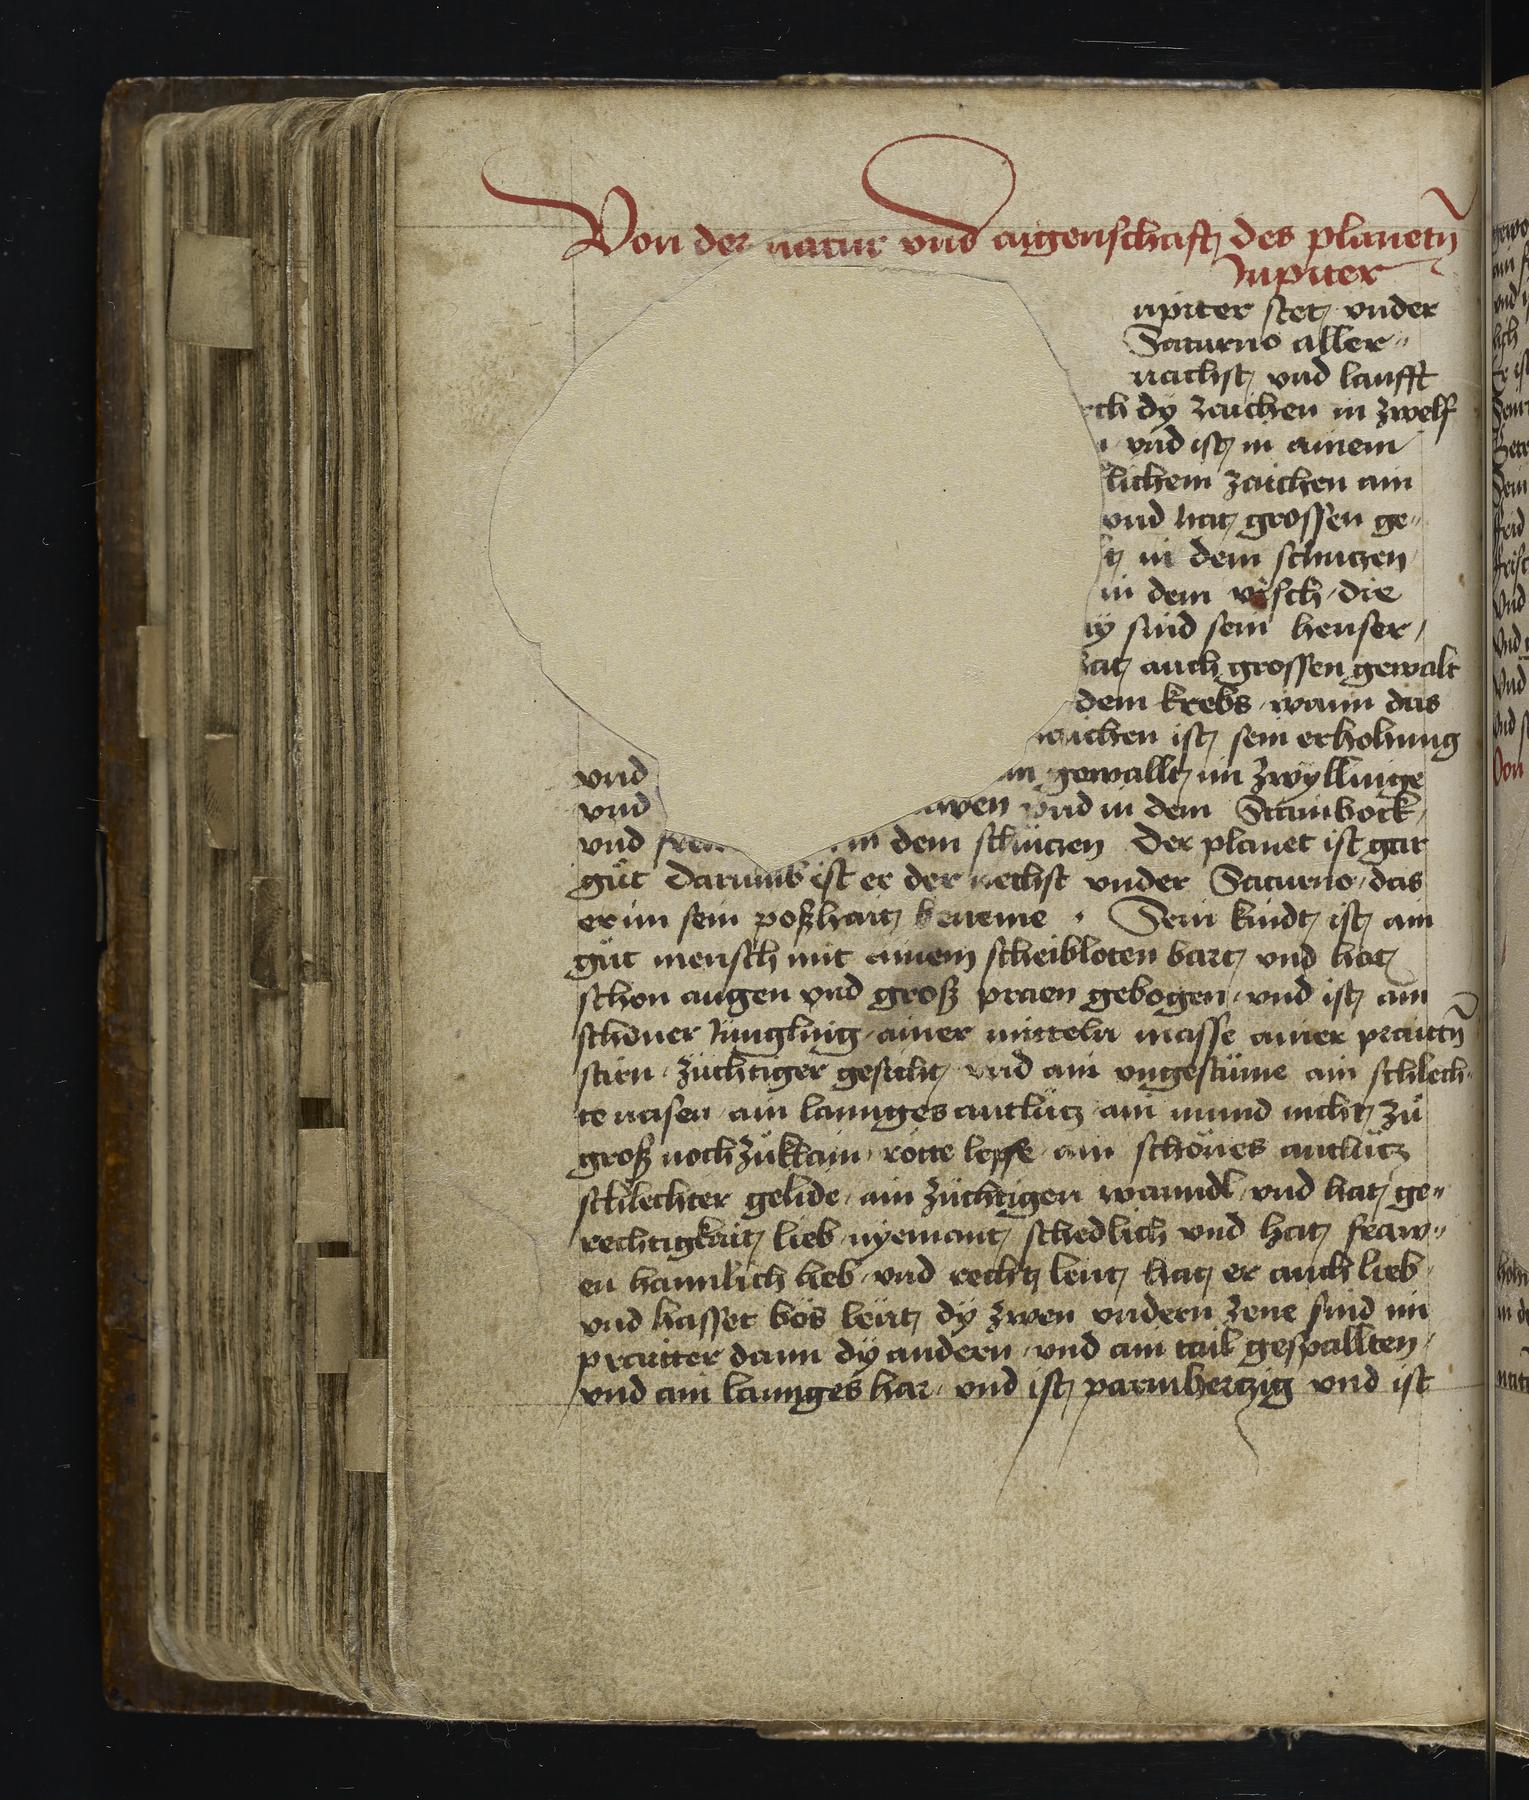 Von der natur vnd aigenschafft des planetn̄
Jupiter
upiter stet vnder
Saturno aller„
nachst vnd laufft
rch dy zaichen in zwelf
vnd ist in ainem
lichem zaichen ain
vnd hat grossen ge„
in dem schutzen
in dem visch / die
sind sein heuser /
hat auch grossen gewalt
dem krebs / wann das
zaichen ist sein erhohung
vnd gewallt im zwyllinge
vnd vnd in dem Stainbock /
vnd in dem schützen Der planet ist gar
gůt Darumb ist er der nechst vnder Saturno / das
er im sein poßhait beneme · Sein kindt ist ain
gůt mensch mit ainem scheibloten bart vnd hat
schon augen vnd groß praen gebogen / vnd ist ain
schöner Jüngling / ainer mitteln masse ainer praittn̄
stirn / züchtiger gesicht vnd ain vngestüme ain schlech„
te nasen / ain lannges antlütz ain mund nicht zů
groß noch zůklain / rötte lepsse / ain schönes antlütz
schlechter gelide / ain züchtigen wanndl / vnd hat ge„
rechtigkait lieb / nyemant schedlich vnd hat fraw„
en haimlich lieb / vnd recht leut hat er auch lieb /
vnd hasset bös leüt dÿ zwen vndern zene sind im
praitter dann dÿ andern / vnd ain tail gespallten /
vnd ain lannges har / vnd ist parmhertzig vnd ist